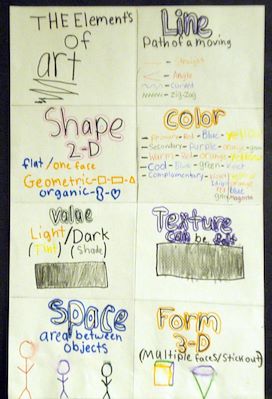 THE Element's
of
art
Line
Path of a moving
- Straight
- Angle
- curved
- zig-zag
Shape
2-D
flat/one face
Geometric-
organic-
Color
- Primary-Red-Blue-yellow
- Secondary-purple-orange-green
- Warm-Red-orange-yellow
- Cool-Blue-green-
- Complementary-
orange
red
Value
Light/Dark
(Tint) (Shade)
Texture
can be felt
Space
area between
objects
Form
3-D
(Multiple faces/Stick out)